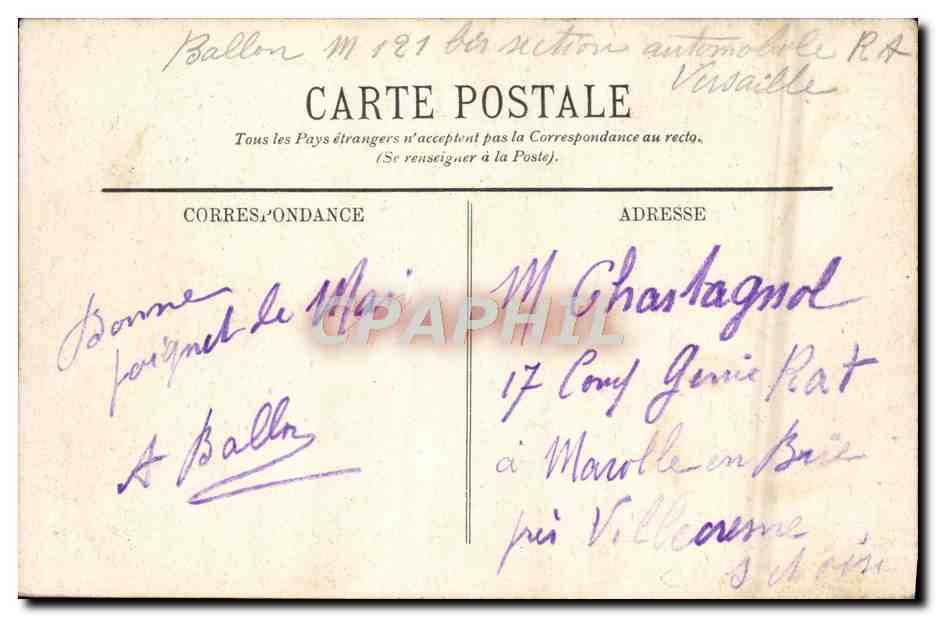 Ballon M 121 bis section automobile R A
Versaille
CARTE POSTALE
Tous les Pays étrangers n'acceptent pas la Correspondance au recto.
(Se renseigner à la Poste).
CORRESPONDANCE
ADRESSE
Bonne
poignet de Main
A Ballon
M Chastagnol
17 Comp Genie Rat
à Marolle en Brie
près Villecresne
S et oise
CPAPHIL